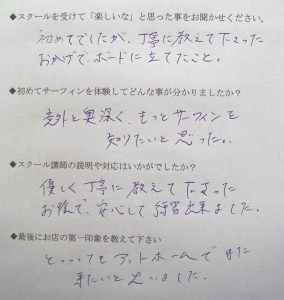 ◆スクールを受けて「楽しいな」と思った事をお聞かせください。
初めてでしたが、丁寧に教えて下さった
おかげで、ボードに立てたこと。
◆初めてサーフィンを体験してどんな事が分かりましたか？
意外と奥深く、もっとサーフィンを
知りたいと思った。
◆スクール講師の説明や対応はいかがでしたか？
優しく丁寧に教えて下さった
お陰で、安心して練習出来ました。
◆最後にお店の第一印象を教えて下さい
とってもアットホームでまた
来たいと思いました。